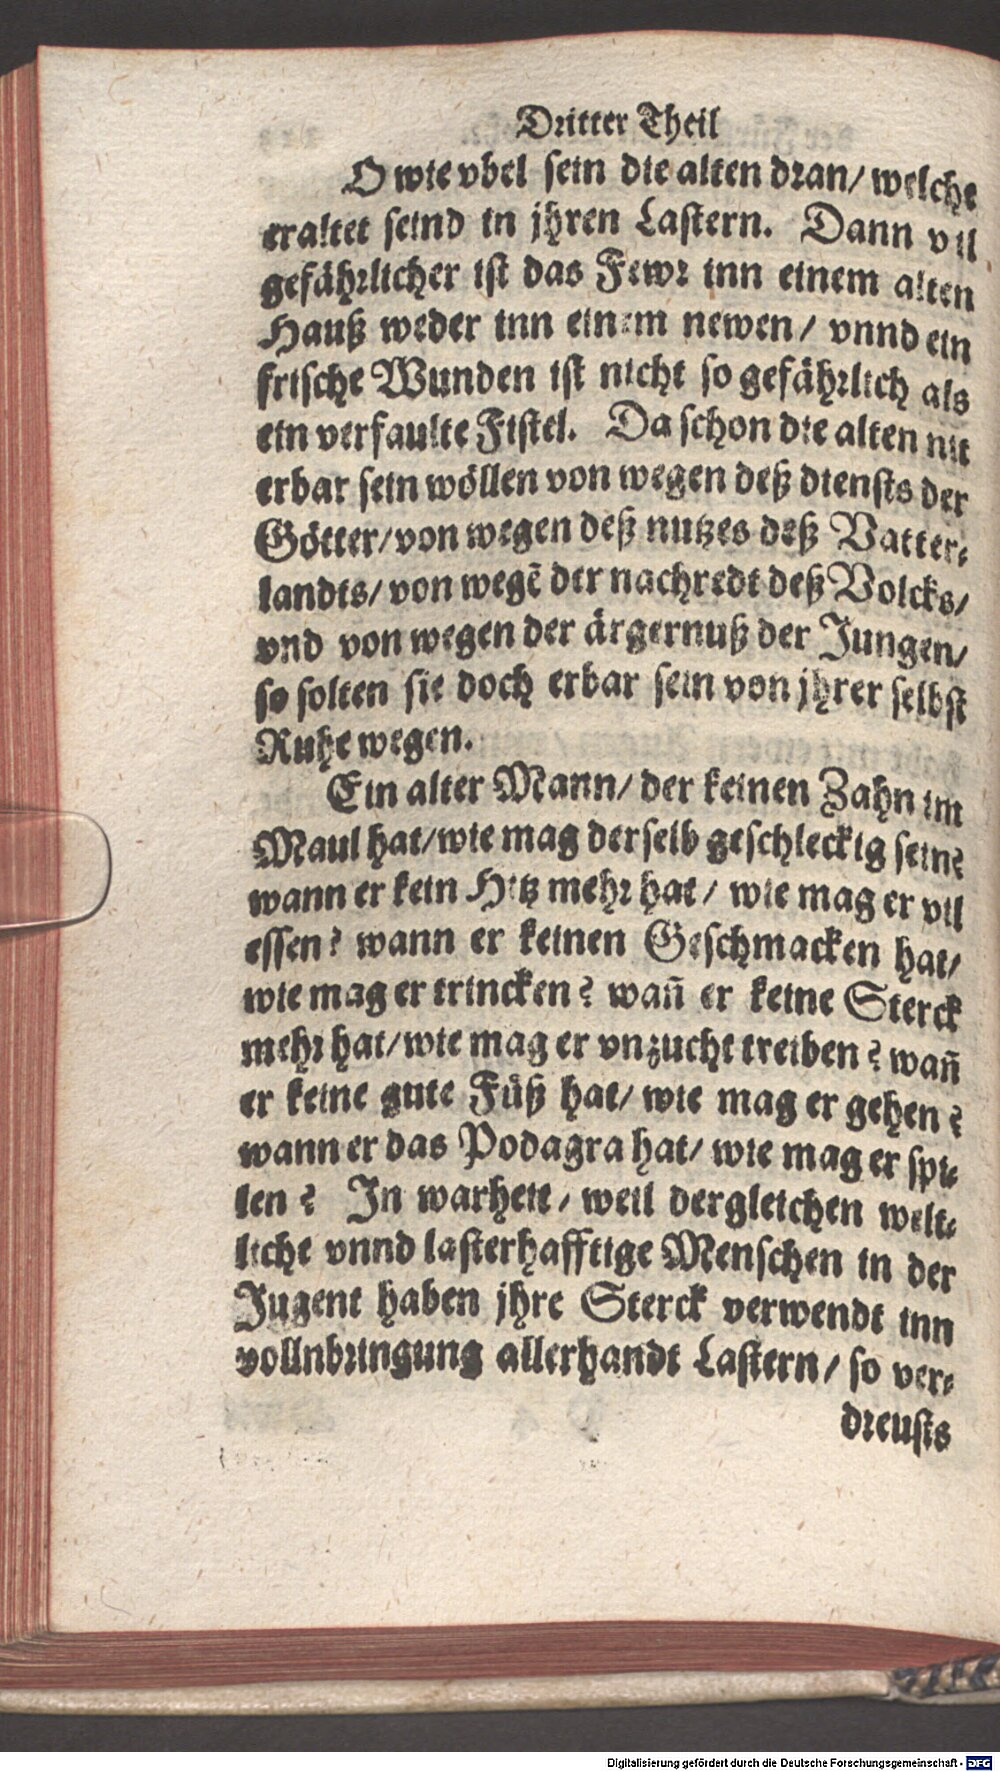 Dritter Theil
O wie vbel sein die alten dran/ welche
eraltet seind in jhren Lastern. Dann vil
gefährlicher ist das Fewr inn einem alten
Hauß weder inn einem newen/ vnnd ein
frische Wunden ist nicht so gefährlich als
ein verfaulte Fistel. Da schon die alten nit
erbar sein wöllen von wegen deß diensts der
Götter/ von wegen deß nutzes deß Vatter-
landts/ von wegē der nachredt deß Volcks/
vnd von wegen der ärgernuß der Jungen/
so solten sie doch erbar sein von jhrer selbst
Ruhe wegen.
Ein alter Mann/ der keinen Zahn im
Maul hat/ wie mag derselb geschleckig sein?
wann er kein Hitz mehr hat/ wie mag er vil
essen? wann er keinen Geschmacken hat/
wie mag er trincken? wañ er keine Sterck
mehr hat/ wie mag er vnzucht treiben? wañ
er keine gute Füß hat/ wie mag er gehen?
wann er das Podagra hat/ wie mag er spi-
len? In warheit/ weil dergleichen welt-
liche vnnd lasterhafftige Menschen in der
Jugent haben jhre Sterck verwendt inn
vollnbringung allerhandt Lastern/ so ver-
dreusts
Digitalisierung gefördert durch die Deutsche Forschungsgemeinschaft - DFG